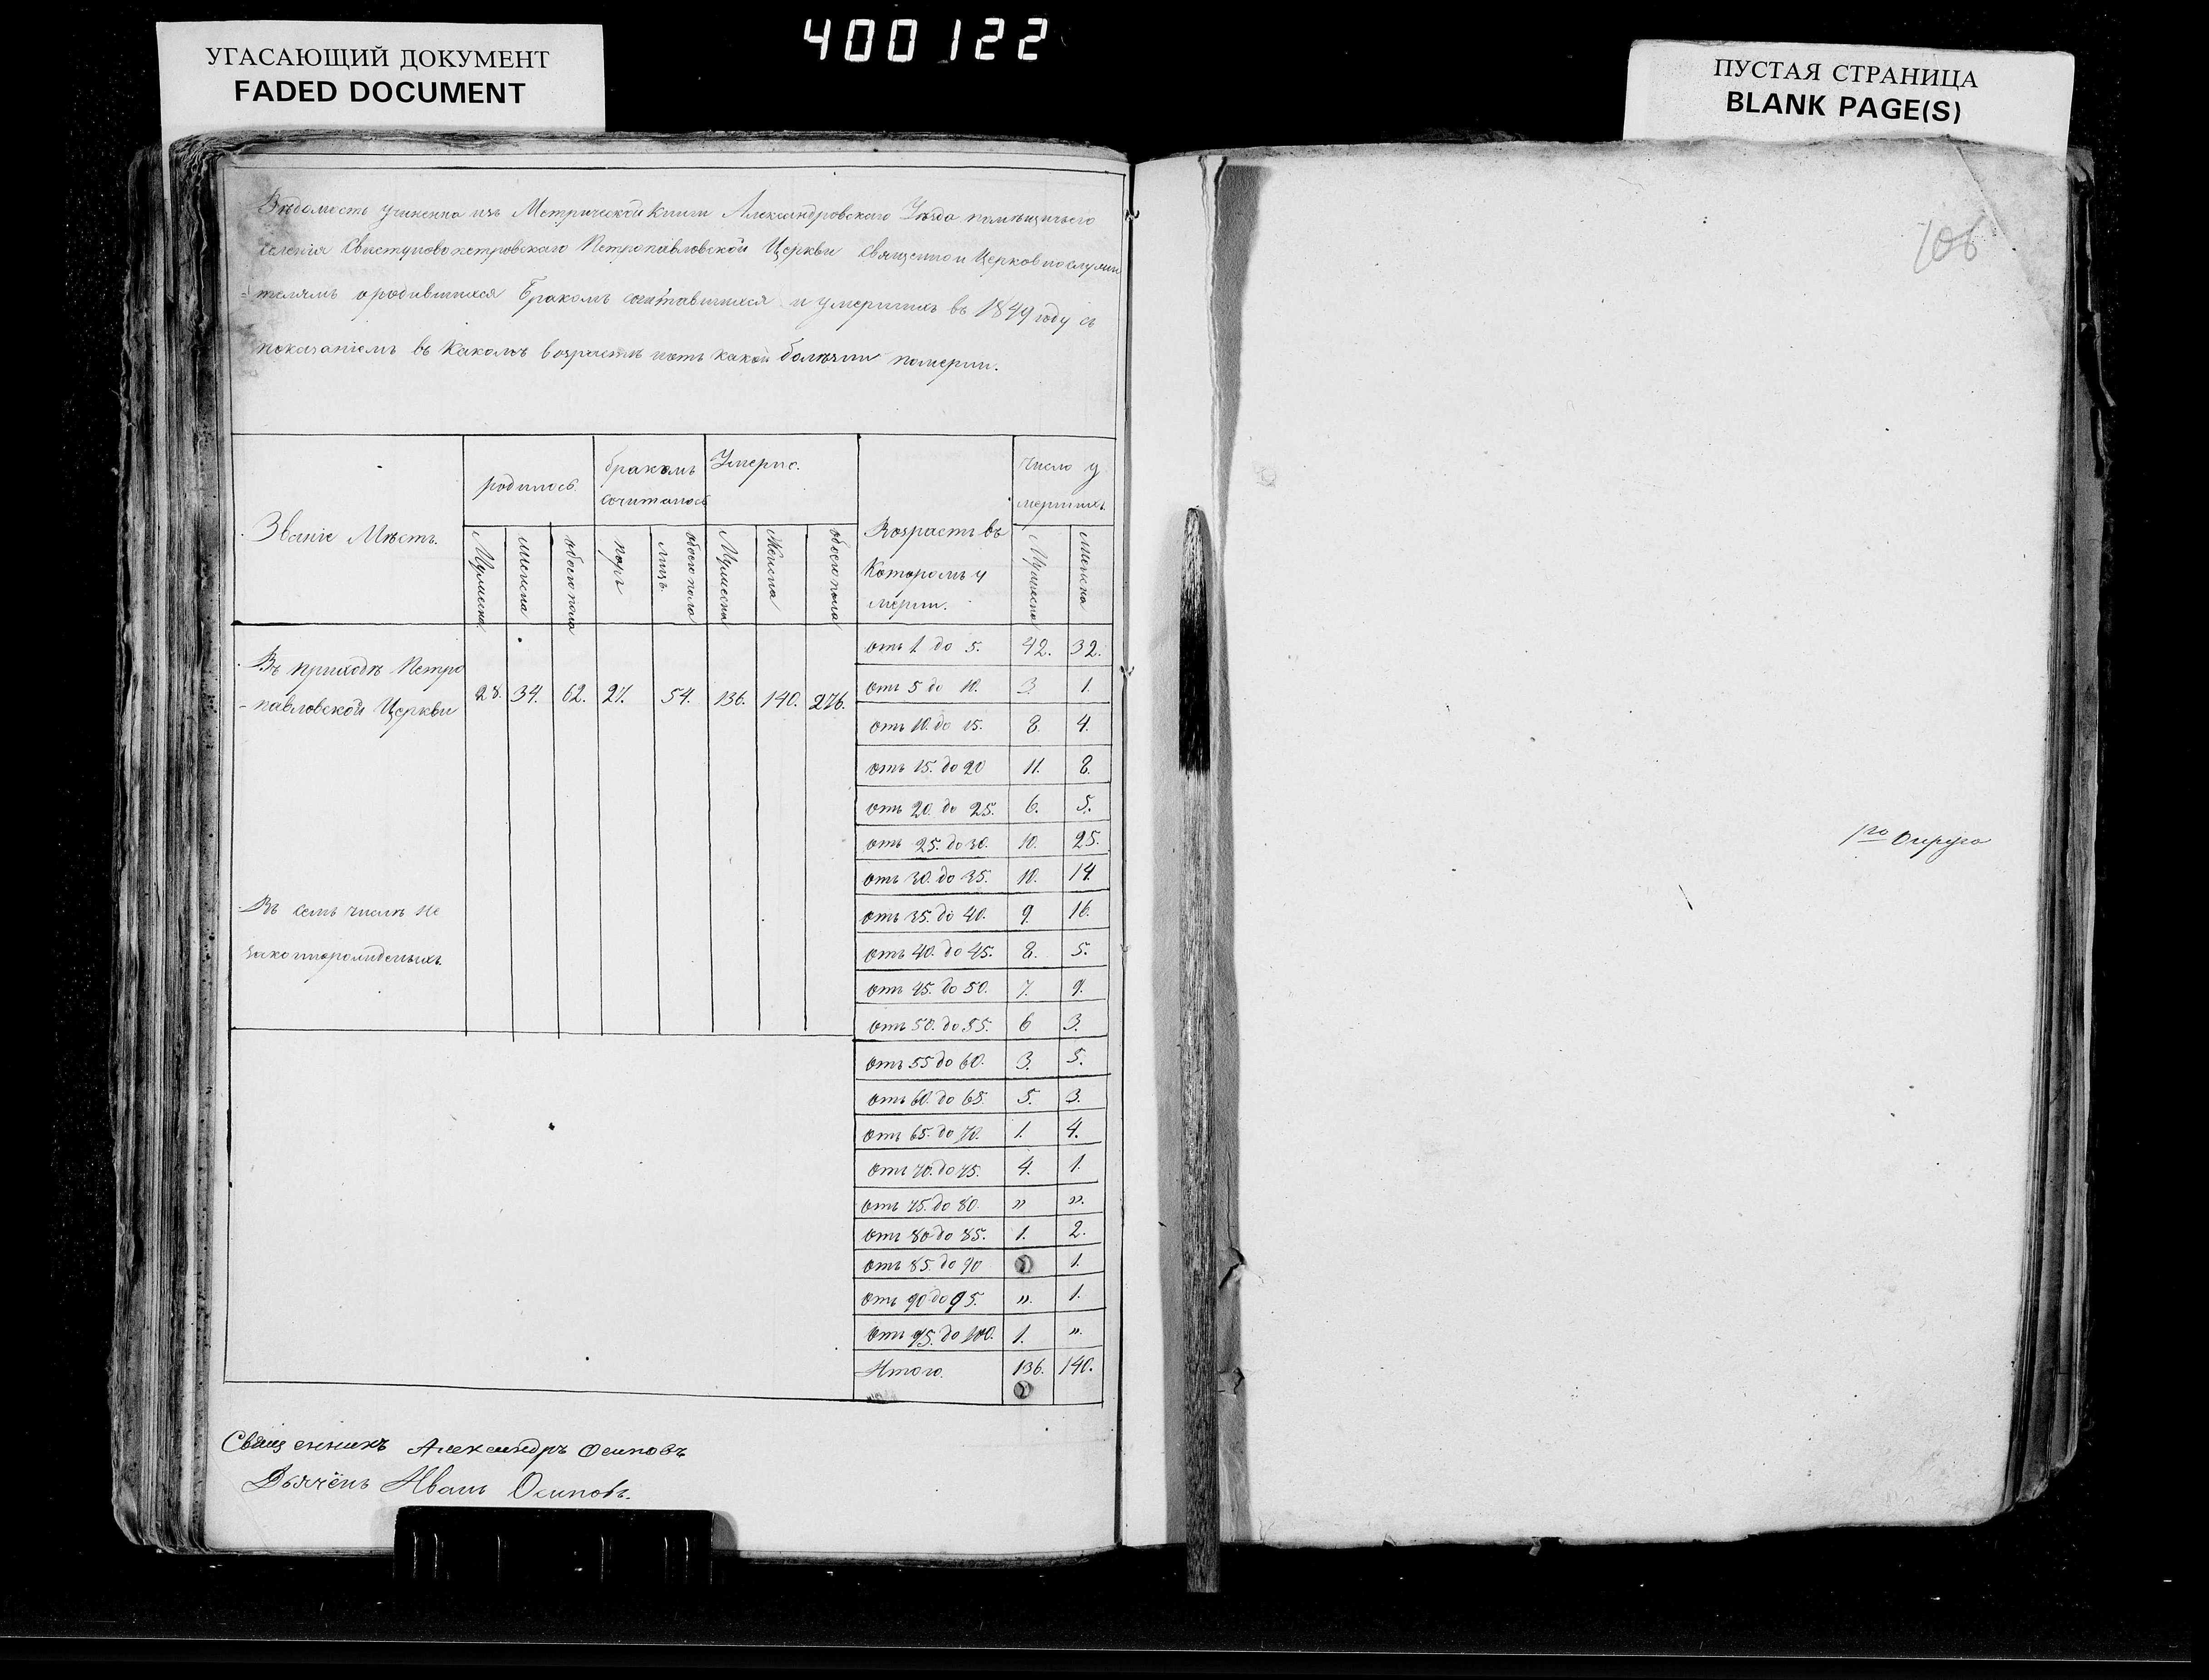 400122
УГАСАЮЩИЙ ДОКУМЕНТ
FADED DOCUMENT
ПУСТАЯ СТРАНИЦА
BLANK PAGE(S)
Вѣдомость учинена изъ Метрической Книги Александровскаго Уѣзда помѣщичьего
селенія Свистуново петровскаго Петропавловской Церкви Священно и Церковнослужи
телямъ о родившихся бракомъ сочитавшихся и умершихъ въ 1849 году съ
показаніемъ въ какомъ возрастѣ и отъ какой болѣзни померли.
Званіе Мѣстъ.
родилось.
бракомъ
сочиталось
Умерло.
Возрастъ въ
Которомъ у
мерли.
число у
мершихъ.
Мужеска
женска
обоего пола
паръ
лицъ
обоего пола
Мужеска
Женска
обоего пола
Мужеска
женска
Въ приходѣ Петро
павловской Церкви
28. 34. 62. 27. 54. 136. 140. 276.
Въ семъ числѣ не
законнорожденыхъ.
отъ 1 до 5. 42. 32.
отъ 5 до 10. 3. 1.
отъ 10. до 15. 8. 4.
отъ 15. до 20 11. 8.
отъ 20. до 25. 6. 5.
отъ 25. до 30. 10. 25.
отъ 30. до 35. 10. 14.
отъ 35. до 40. 9. 16.
отъ 40. до 45. 8. 5.
отъ 45. до 50. 7. 9.
отъ 50. до 55. 6 3.
отъ 55 до 60. 3. 5.
отъ 60. до 65. 5. 3.
отъ 65. до 70. 1. 4.
отъ 70. до 75. 4. 1.
отъ 75. до 80. „ „.
отъ 80 до 85. 1. 2.
отъ 85. до 90 1.
отъ 90 до 95. „. 1.
отъ 95. до 100. 1. „.
Итого. 136. 140.
Священникъ Александръ Осиповъ
Дьячёкъ Иванъ Осиповъ.
106
1го Округа